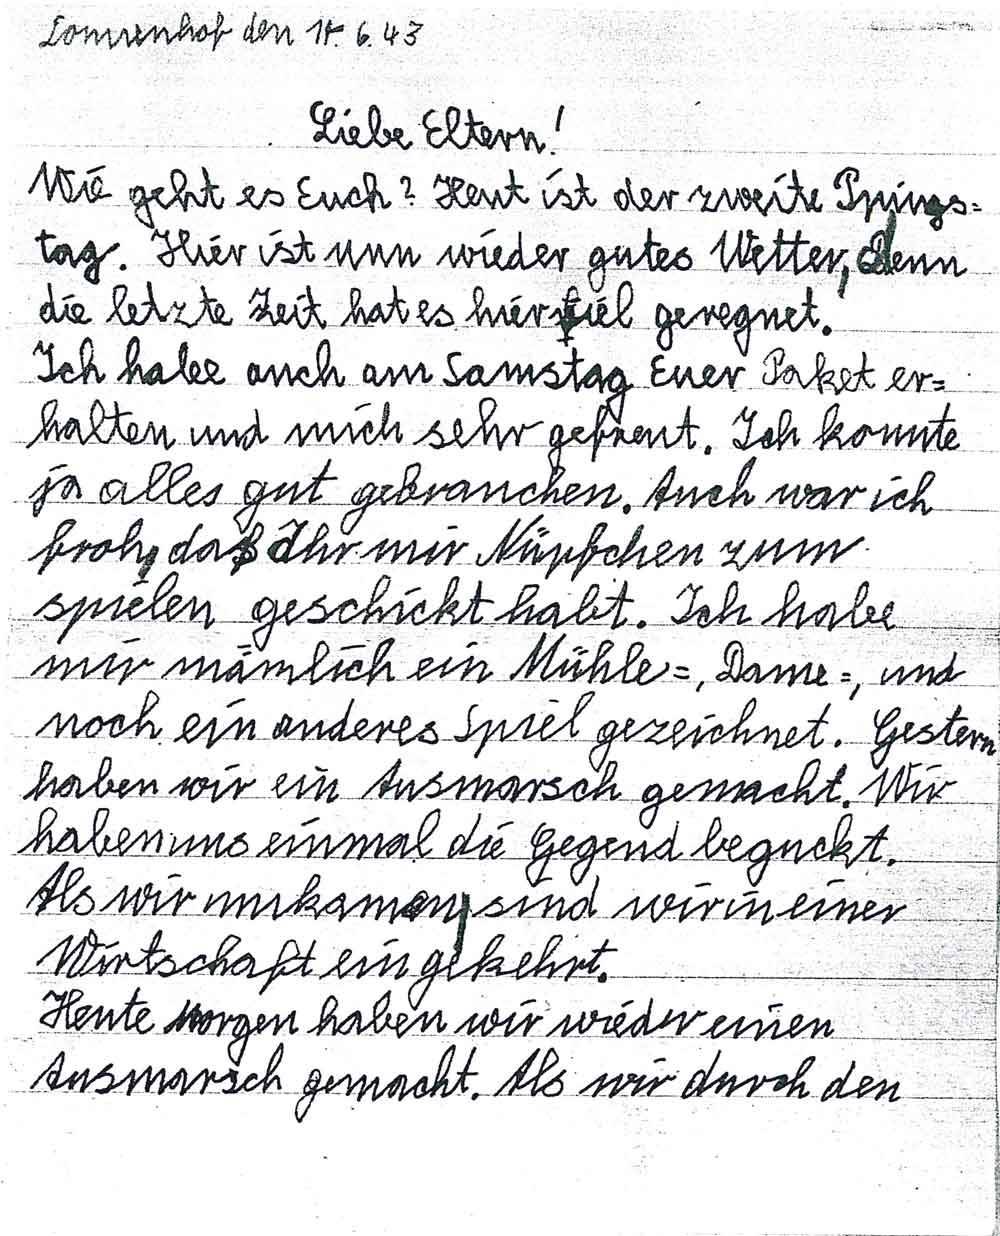 Sonnenhof den 14.6.43
Liebe Eltern!
Wie geht es Euch? Heut ist der zweite Pfings=
tag. Hier ist nun wieder gutes Wetter, Denn
die letzte Zeit hat es hier fiel geregnet.
Ich habe auch am Samstag Euer Paket er=
halten und mich sehr gefreut. Ich konnte
ja alles gut gebrauchen. Auch war ich
froh, daß Ihr mir Nüpfchen zum
spielen geschickt habt. Ich habe
mir nämlich ein Mühle=, Dame=, und
noch ein anderes Spiel gezeichnet. Gestern
haben wir ein Ausmarsch gemacht. Wir
haben uns einmal die Gegend beguckt.
Als wir sind wir in einer
Wirtschaft eingekehrt.
Heute Morgen haben wir wieder einen
Ausmarsch gemacht. Als wir durch den